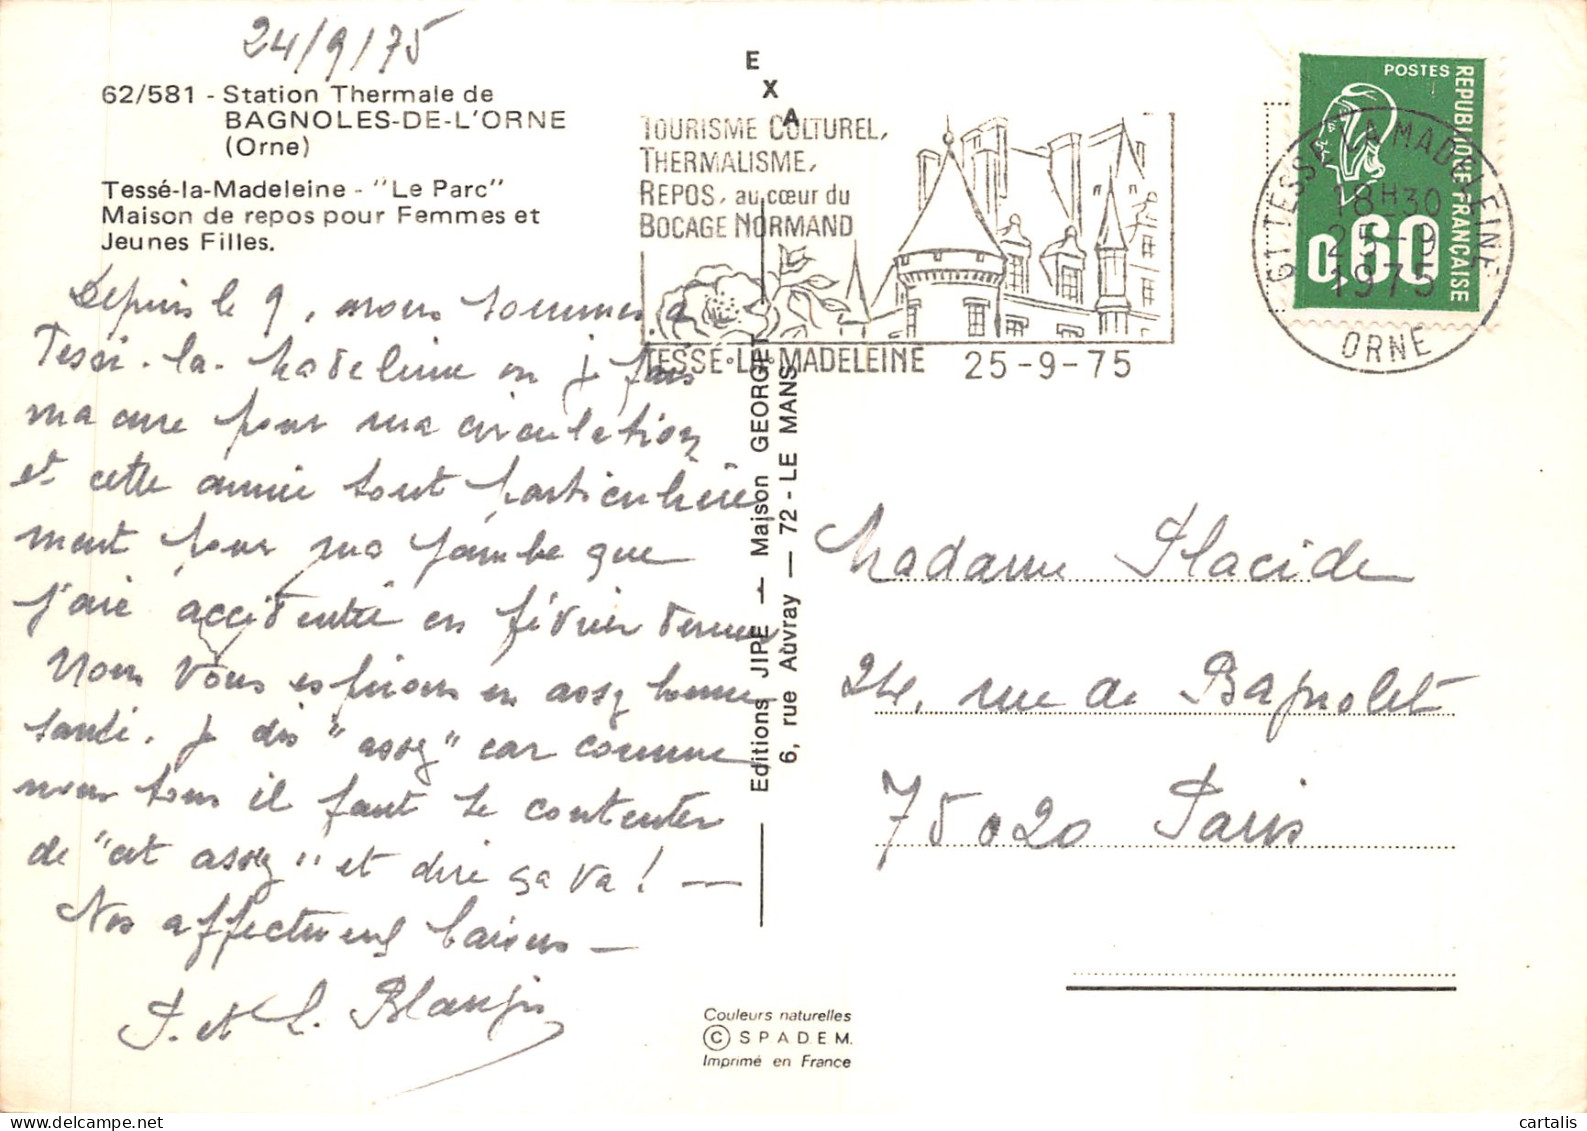 24/9/75
62/581 - Station Thermale de
BAGNOLES-DE-L'ORNE
(Orne)
Tessé-la-Madeleine - "Le Parc"
Maison de repos pour Femmes et
Jeunes Filles.
Depuis le 9, nous sommes à
Tessé-la-Madeleine ou je fais
ma cure pour ma circulation
et cette année tout particulière
ment pour ma jambe que
j'ai accidentée en février dernier
Nous vous espérons en assez bonne
santé. Je dis "assez" car comme
nous tous il faut se contenter
de "cet assez" et dire ça va! —
Nos affectueux baisers —
P. et L.
EXA
TOURISME CULTUREL,
THERMALISME,
REPOS, au cœur du
BOCAGE NORMAND
TESSÉ·LA·MADELEINE 25-9-75
Editions JIPE — Maison GEORGET
6, rue Auvray — 72 - LE MANS
POSTES
REPUBLIQUE FRANÇAISE
0,60
61 TESSE LA MADELEINE
18H30
25-9
1975
ORNE
Madame Placide
24, rue de Bagnolet
75020 Paris
Couleurs naturelles
© SPADEM.
Imprimé en France
cartalis